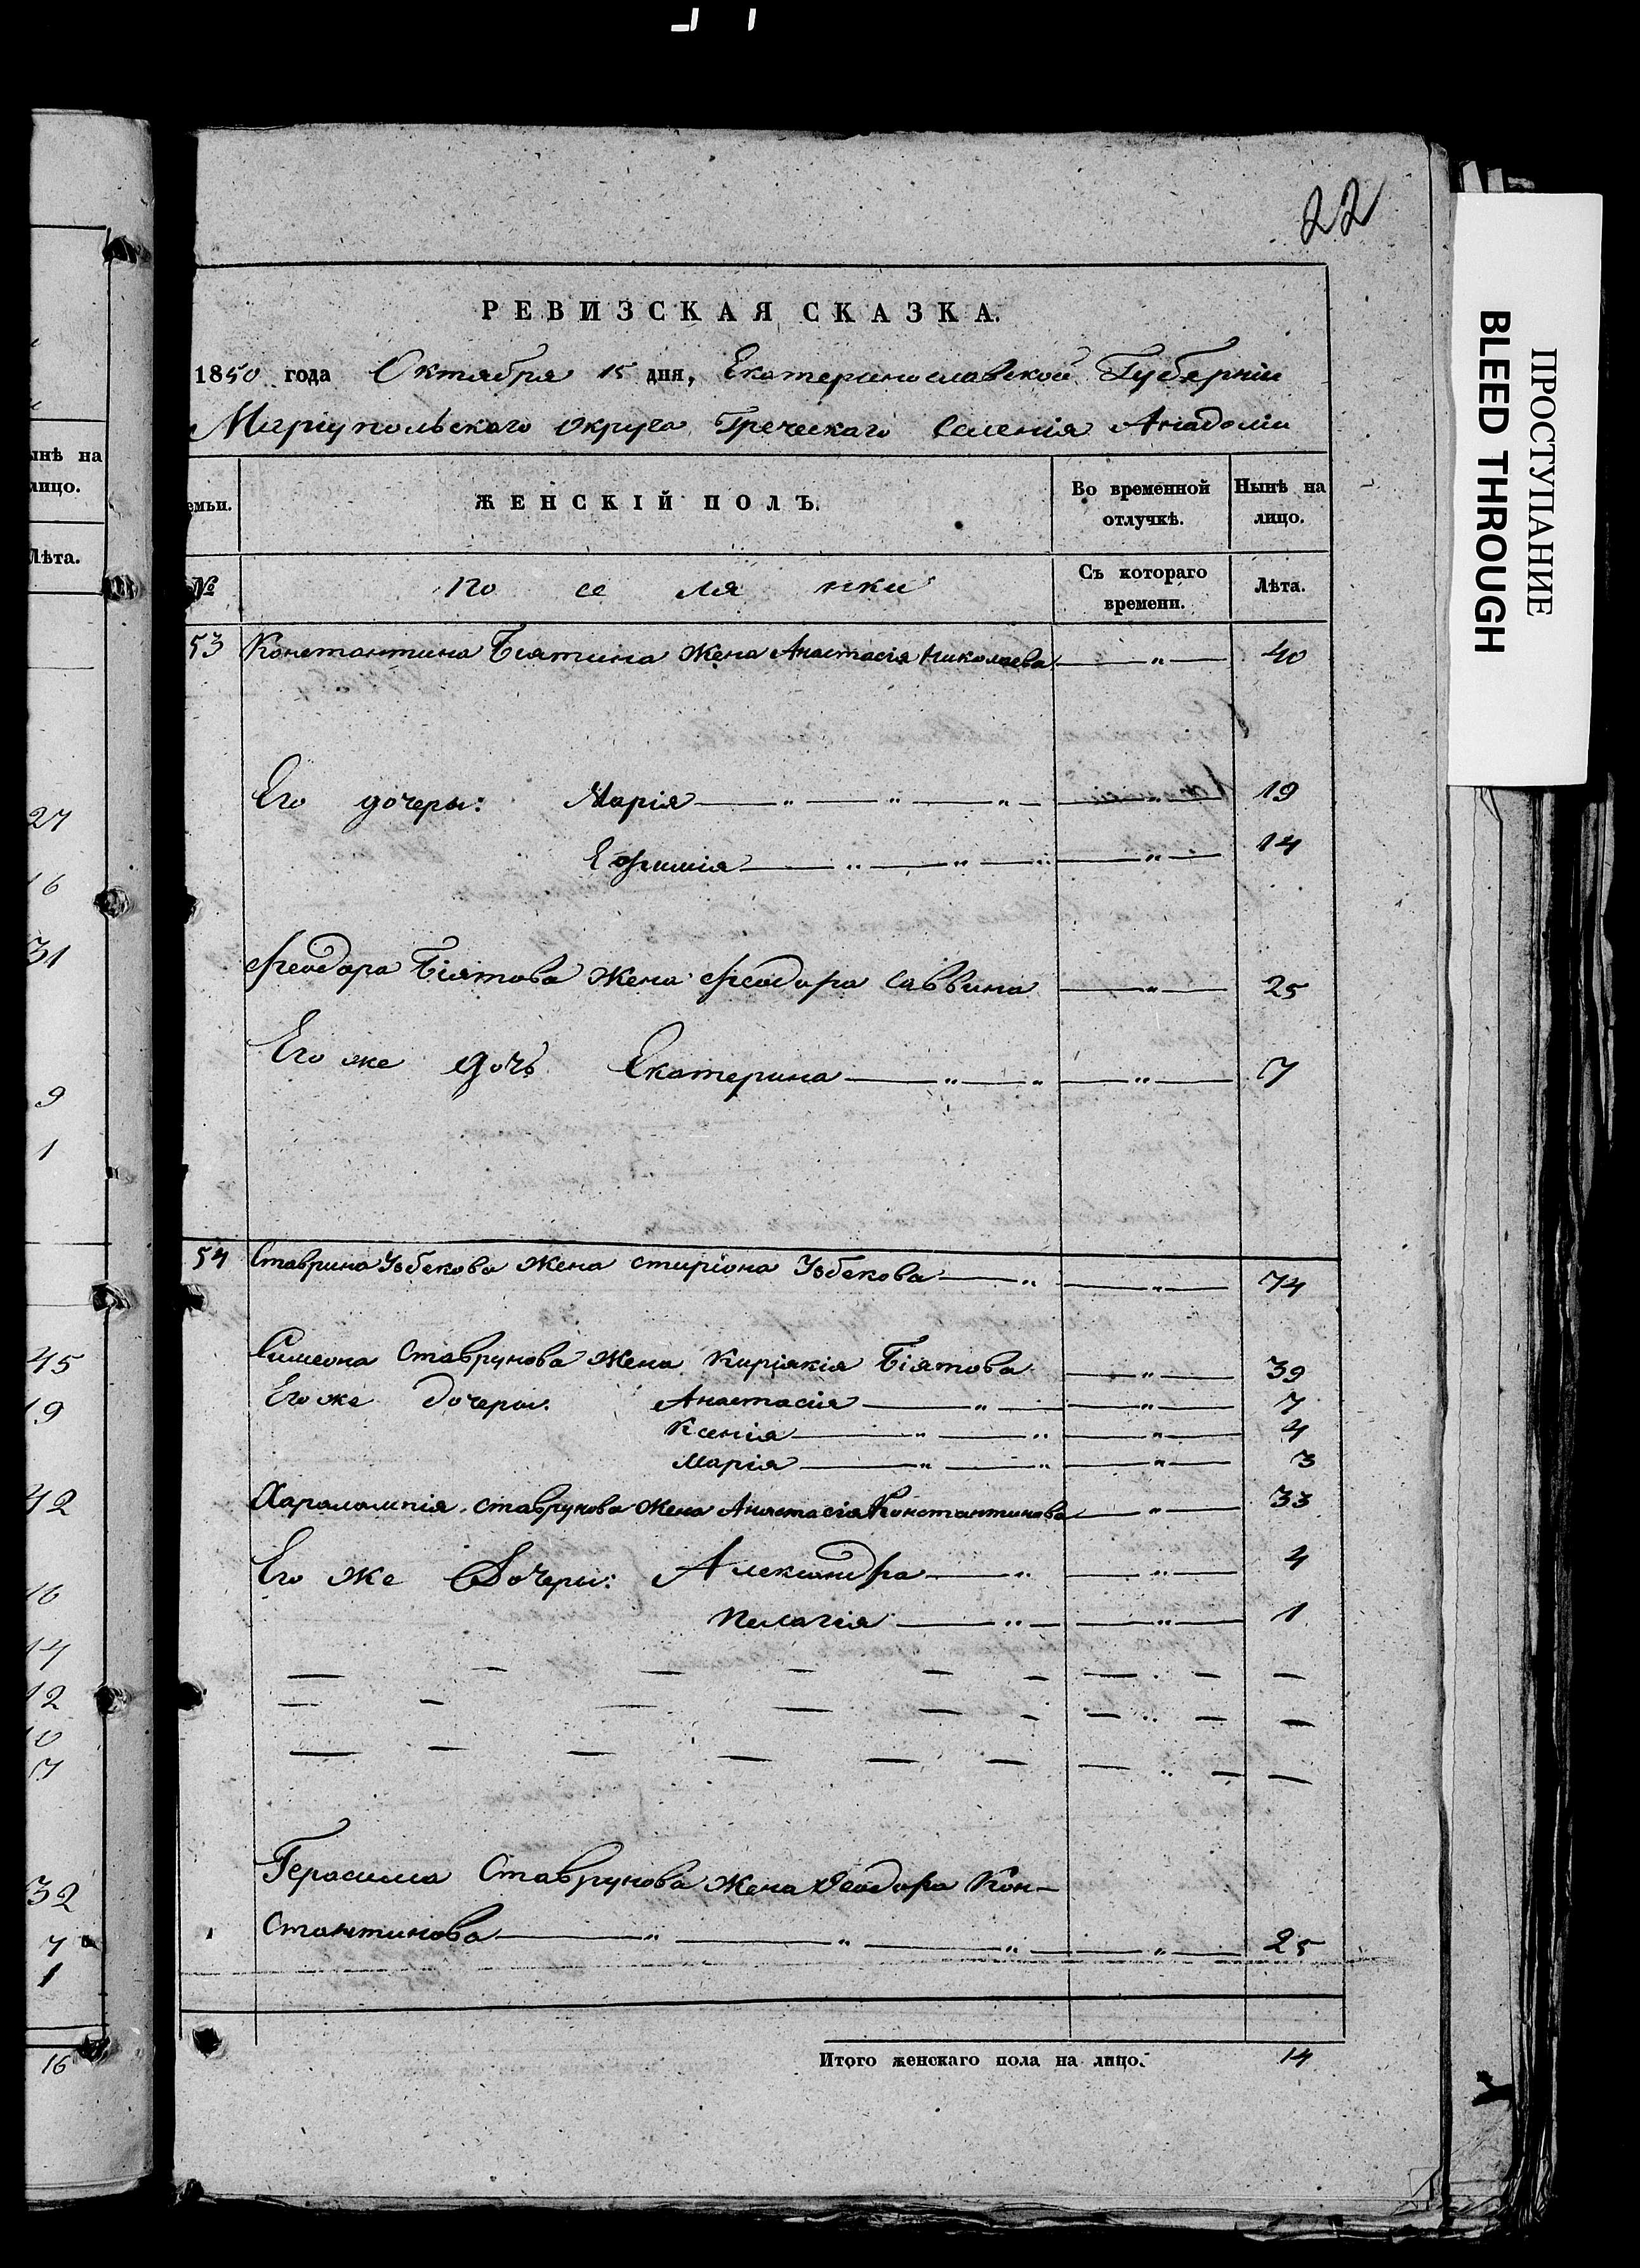 22
РЕВИЗСКАЯ СКАЗКА.
1850 года Октября 15 дня, Екатеринославской Губерніи
Маріупольскаго округа Греческаго Селенія Анадоліи
емьи.
ЖЕНСКІЙ ПОЛЪ.
Во временной отлучкѣ.
Нынѣ на лицо.
№
по се ля нки
Съ котораго времени.
Лѣта.
53 Константина Біятина Жена Анастасія Николаева — " — 40
Его дочеры: Марія — " — " — " — " — 19
Ефимія — " — " — " — " — 14
Феодора Біятова Жена Феодора Саввина — " — 25
Его же дочь Екатерина — " — " — " — 7
54 Ставрина Узбекова Жена стиріона Узбекова — " — " — 74
Симеона Ставрунова Жена Киріякія Біятова — " — 39
Его же дочеры: Анастасія — " — " — 7
Ксенія — " — " — " — 4
Марія — " — " — " — 3
Харалампія Ставрунова Жена Анастасія Константинова — " — 33
Его же Дочеры: Александра — " — " — 4
Пелагія — " — " — 1
Герасима Ставрунова Жена Феодора Кон-
стантинова — " — " — " — " — 25
Итого женскаго пола на лицо. 14
ынѣ на
лицо.
Лѣта.
27
16
31
9
1
45
19
42
16
14
12
10
7
32
7
1
16
ПРОСТУПАНИЕ
BLEED THROUGH